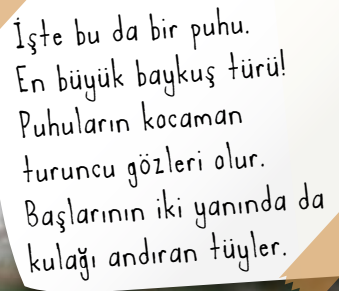 İşte bu da bir puhu.
En büyük baykuş türü!
Puhuların kocaman
turuncu gözleri olur.
Başlarının iki yanında da
kulağı andıran tüyler.